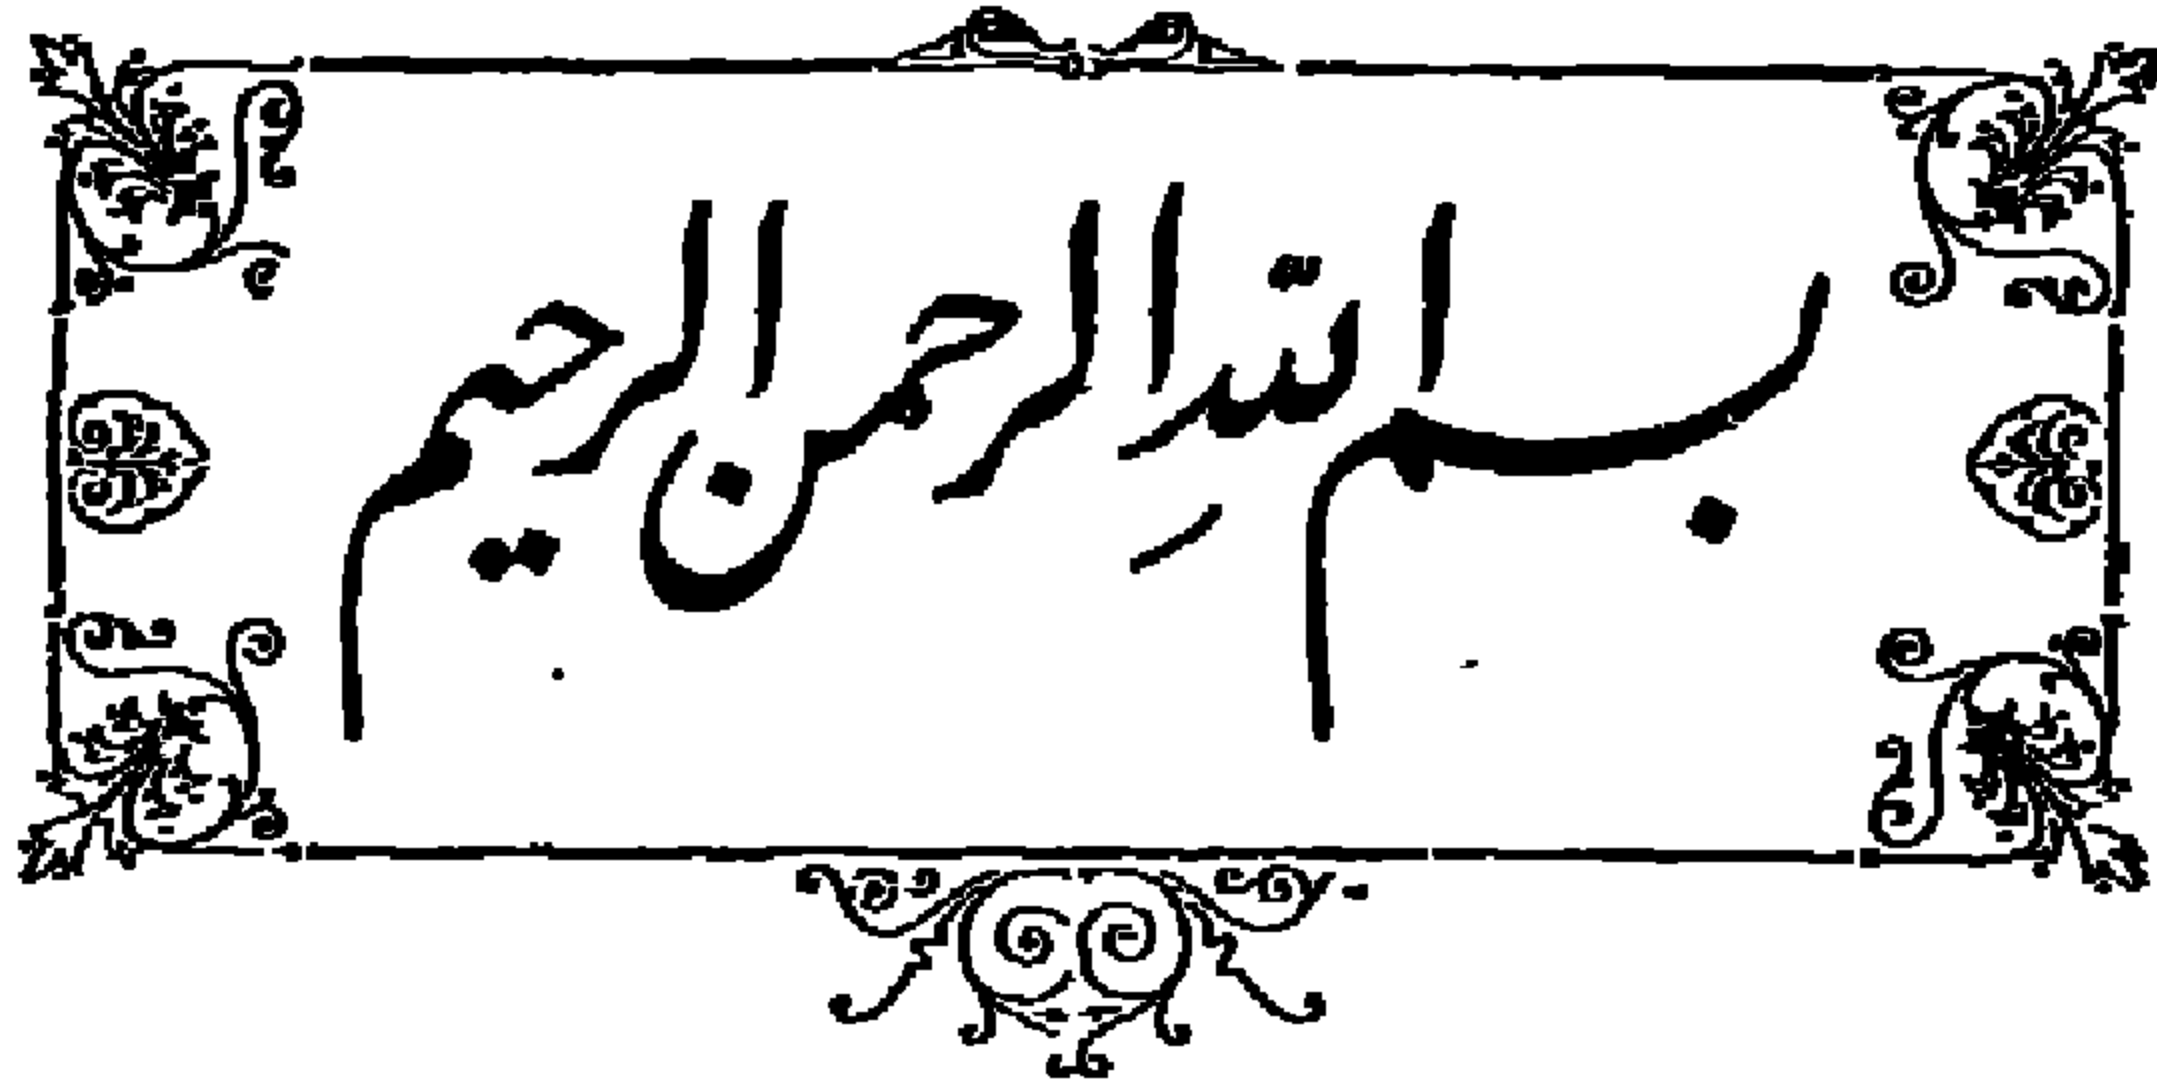 بسم اللهِ الرحمن الرحيم